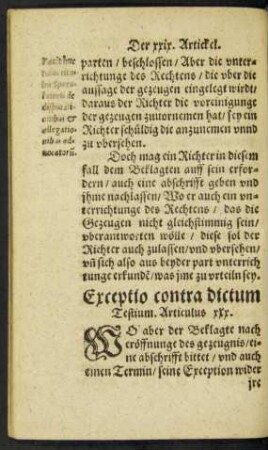 Der xxix. Artickel.
parten / beschlossen / Aber die vnter-
richtunge des Rechtens / die vber die
aussage der gezeugen eingelegt wirdt /
daraus der Richter die voreinigunge
der gezeugen zuuornemen hat / sey ein
Richter schüldig die anzunemen vnnd
zu vbersehen.
Doch mag ein Richter in diesem
fall dem Beklagten auff sein erfor-
dern / auch eine abschrifft geben vnd
jhme nachlassen / Wo er auch ein vn-
terrichtunge des Rechtens / das die
Gezeugen nicht gleichstimmig sein /
vberantworten wölle / diese sol der
Richter auch zulassen / vnd vbersehen /
vñ sich also aus beyder part vnterrich
tunge erkundẽ / was jme zu vrteiln sey.
Exceptio contra dictum
Testium. Articulus xxx.
WO aber der Beklagte nach
eröffnunge des gezeugnis / ei-
ne abschrifft bittet / vnd auch
einen Termin / seine Exception wider
jre